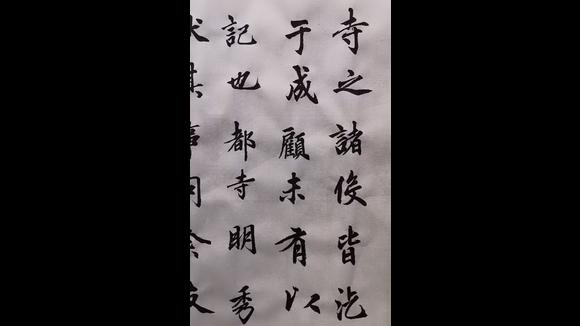 寺之諸役皆汔
于成顧未有以
記也都寺明秀
其事